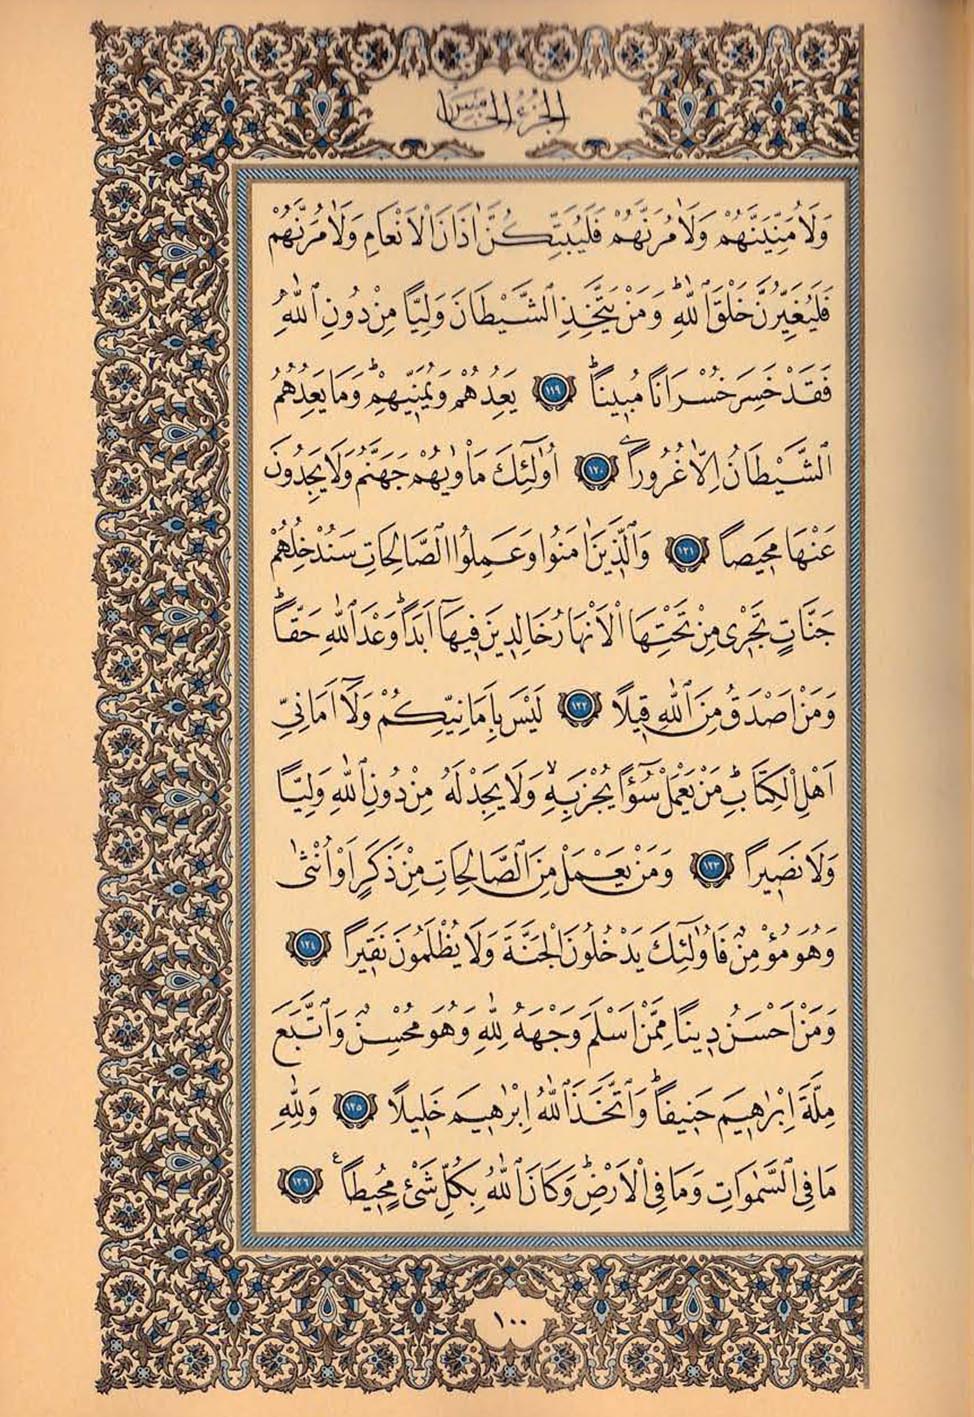 الجزء الخامس
وَلَاُمَنِّيَنَّهُمْ وَلَاٰمُرَنَّهُمْ فَلَيُبَتِّكُنَّ اٰذَانَ الْاَنْعَامِ وَلَاٰمُرَنَّهُمْ
فَلَيُغَيِّرُنَّ خَلْقَ ٱللّٰهِؕ وَمَنْ يَتَّخِذِ ٱلشَّيْطَانَ وَلِيًّا مِنْ دُونِ ٱللّٰهِ
فَقَدْ خَسِرَ خُسْرَانًا مُبٖينًاؕ ١١٩ يَعِدُهُمْ وَيُمَنّٖيهِمْؕ وَمَا يَعِدُهُمُ
ٱلشَّيْطَانُ اِلَّا غُرُورًا ١٢٠ اُوۨلٰٓئِكَ مَأْوٰيهُمْ جَهَنَّمُ وَلَا يَجِدُونَ
عَنْهَا مَحٖيصًا ١٢١ وَٱلَّذٖينَ اٰمَنُوا وَعَمِلُوا ٱلصَّالِحَاتِ سَنُدْخِلُهُمْ
جَنَّاتٍ تَجْرٖى مِنْ تَحْتِهَا الْاَنْهَارُ خَالِدٖينَ فٖيهَٓا اَبَدًاؕ وَعْدَ ٱللّٰهِ حَقًّاؕ
وَمَنْ اَصْدَقُ مِنَ ٱللّٰهِ قٖيلًا ١٢٢ لَيْسَ بِاَمَانِيِّكُمْ وَلَٓا اَمَانِيِّ
اَهْلِ الْكِتَابِؕ مَنْ يَعْمَلْ سُٓوءًا يُجْزَ بِهٖۙ وَلَا يَجِدْ لَهُ مِنْ دُونِ ٱللّٰهِ وَلِيًّا
وَلَا نَصٖيرًا ١٢٣ وَمَنْ يَعْمَلْ مِنَ ٱلصَّالِحَاتِ مِنْ ذَكَرٍ اَوْ اُنْثٰى
وَهُوَ مُؤْمِنٌ فَاُوۨلٰٓئِكَ يَدْخُلُونَ الْجَنَّةَ وَلَا يُظْلَمُونَ نَقٖيرًا ١٢٤
وَمَنْ اَحْسَنُ دٖينًا مِمَّنْ اَسْلَمَ وَجْهَهُ لِلّٰهِ وَهُوَ مُحْسِنٌ وَٱتَّبَعَ
مِلَّةَ اِبْرٰهٖيمَ حَنٖيفًاؕ وَٱتَّخَذَ ٱللّٰهُ اِبْرٰهٖيمَ خَلٖيلًا ١٢٥ وَلِلّٰهِ
مَا فِى ٱلسَّمٰوَاتِ وَمَا فِى الْاَرْضِؕ وَكَانَ ٱللّٰهُ بِكُلِّ شَىْءٍ مُحٖيطًا ع ١٢٦
١٠٠